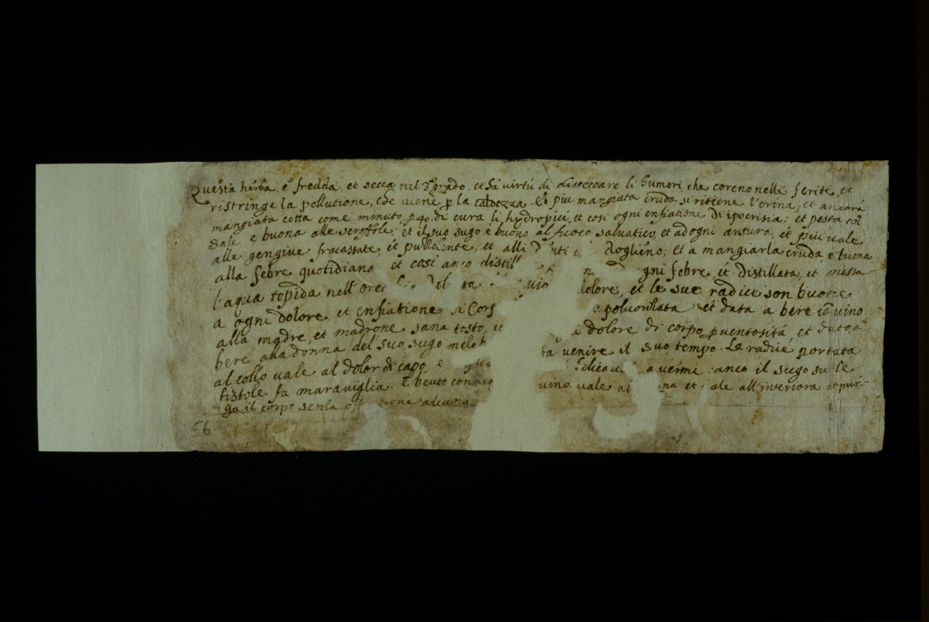 Questa herba, é fredda et secca nel 3º grado, et há virtú di disseccare li humori, che coreno nelle ferite, et
ristringe la pollutione, che viene p la caldezza. Et piu mangiata cruda si ritiene l'orina, et ancora
mangiata cotta come minuto di cura li hydropici, et cosi ogni enfiatione di ipocrisia: et pesta col
sale e buona alle scroffole: et il suo sugo é buono al fuoco salvatico, et ad ogni arsura, et piú vale
alle gengive fracassate, et et alli et a mangiarla cruda é buona
alla febre quotidiana et cosi anco distill gni febre, et distillata, et messa
l'aqua tepida nell'orec dolore, et le sue radice son buone
a ogni dolore et enfiatione polverizata et data a bere có vino
alla madre, et madrone sana tosto, et dolore di corpo p ventositá et data á
bere alla donna del suo sugo ta venire il suo tempo. La radice portata
al collo vale al dolor di capo, e vermi: anco il sugo su le
fistole fa maraviglia. E beuto con vino vale na et vale all'intercora et pur-
ga il corpo senza tione alcuna
56